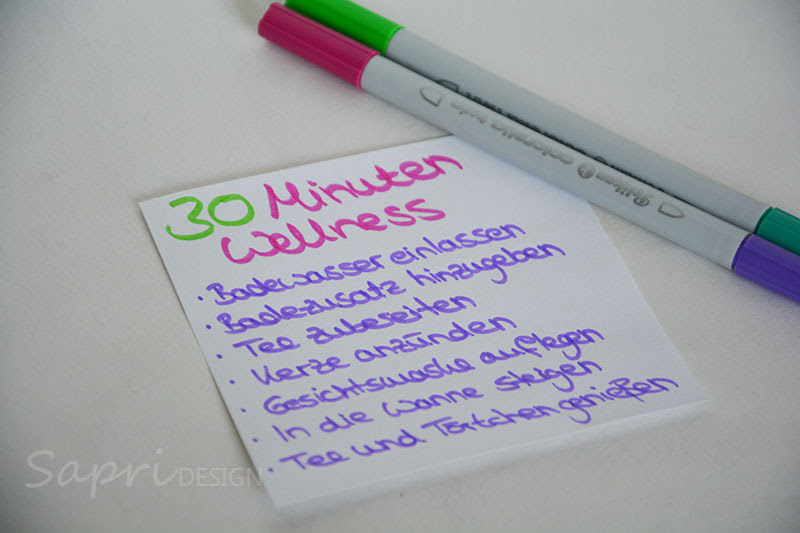 30 Minuten
Wellness
· Badewasser einlassen
· Badezusatz hinzugeben
· Tee zubereiten
· Kerze anzünden
· Gesichtsmaske auflegen
· In die Wanne steigen
· Tee und Törtchen genießen
Pelikan colorella twin
Sapri DESIGN